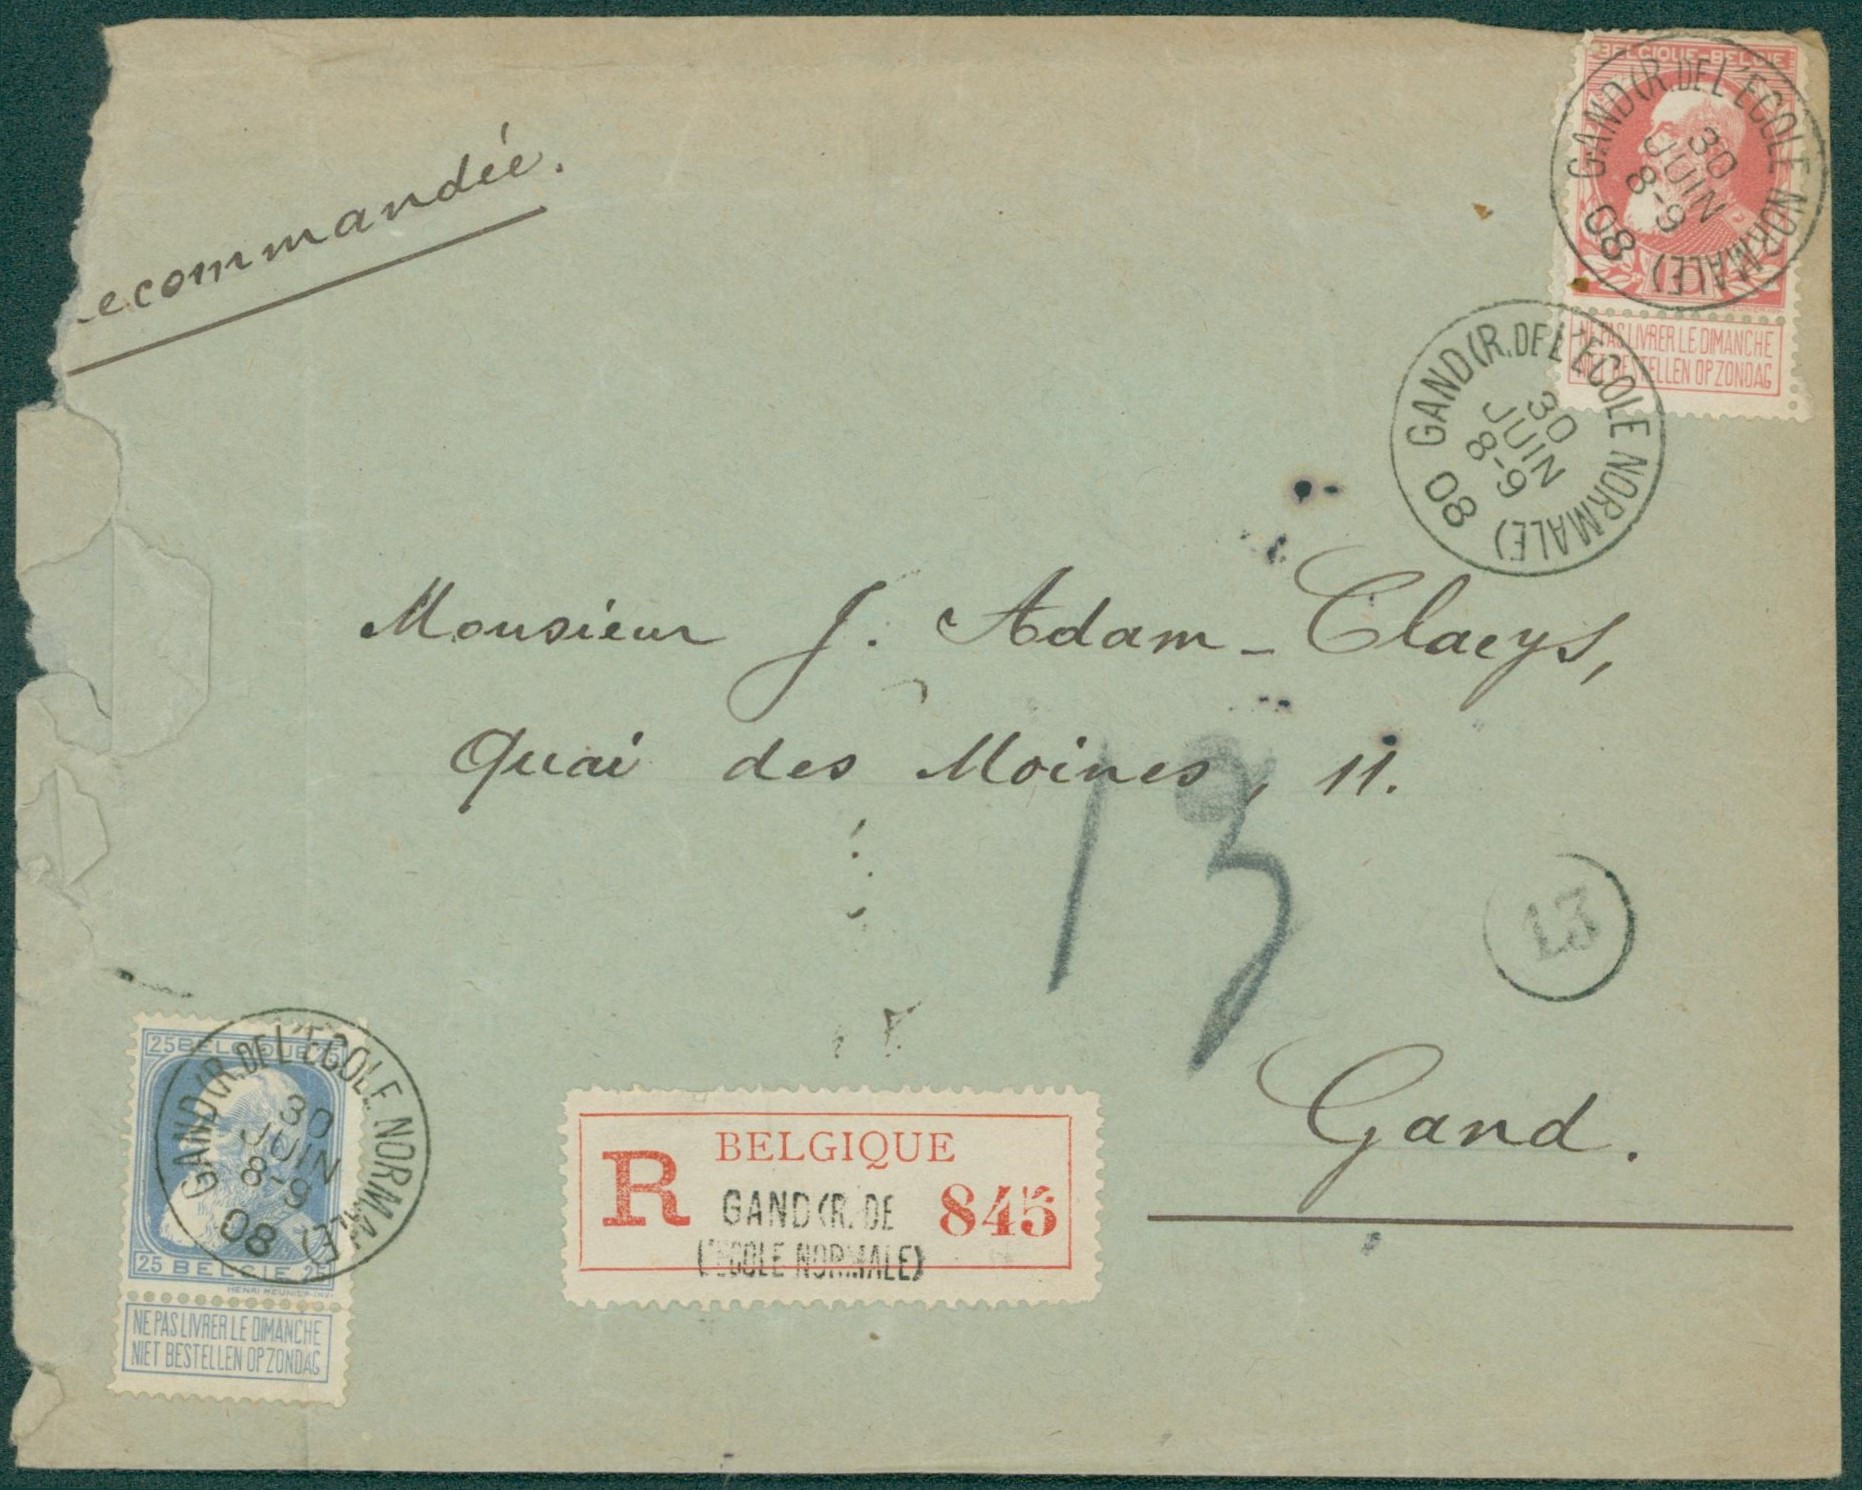 ecommandée.
BELGIQUE-BELGIE
NE PAS LIVRER LE DIMANCHE
NIET BESTELLEN OP ZONDAG
GAND (R. DE L'ECOLE NORMALE)
30
JUIN
8-9
08
GAND (R. DE L'ECOLE NORMALE)
30
JUIN
8-9
08
Monsieur J. Adam-Claeys,
Quai des Moines, 11.
13
13
Gand.
25 BELGIQUE 25
25 BELGIE 25
HENRI MEUNIER INV.
NE PAS LIVRER LE DIMANCHE
NIET BESTELLEN OP ZONDAG
GAND (R. DE L'ECOLE NORMALE)
30
JUIN
8-9
08
R BELGIQUE
GAND (R. DE 845
L'ECOLE NORMALE)